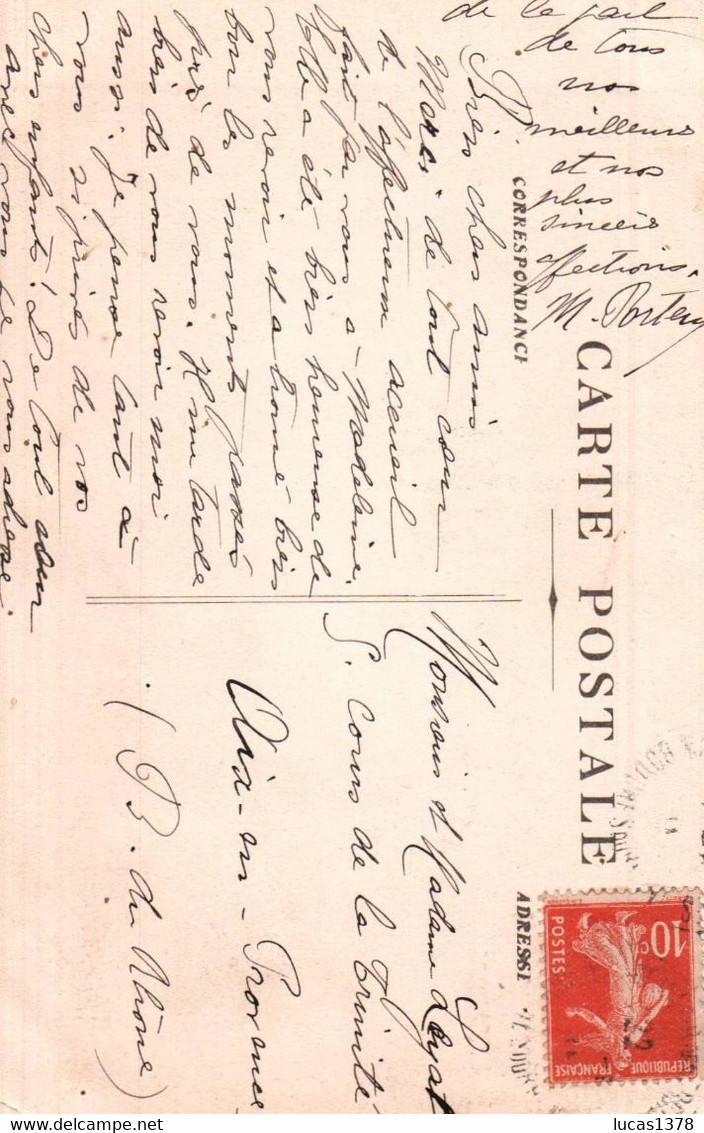 CARTE POSTALE
CORRESPONDANCE
ADRESSE
Très chers amis
Merci de tout cœur
de l'affectueux accueil
fait par vous à Madeleine.
Elle a été très heureuse de
vous revoir et a trouvé très
bon les moments passés
près de vous. Il me tarde
bien de vous revoir moi
aussi. Je pense tant à
vous si privés de vos
chers enfants! De tout cœur
avec vous je vous adresse
de la part
de tous
nos
meilleurs
et nos
plus
sincères
affections.
M.
Monsieur et Madame
5. Cours de la Trinité
Aix-en-Provence
(B. du Rhône)
10c
POSTES
REPUBLIQUE FRANÇAISE
lucas1378